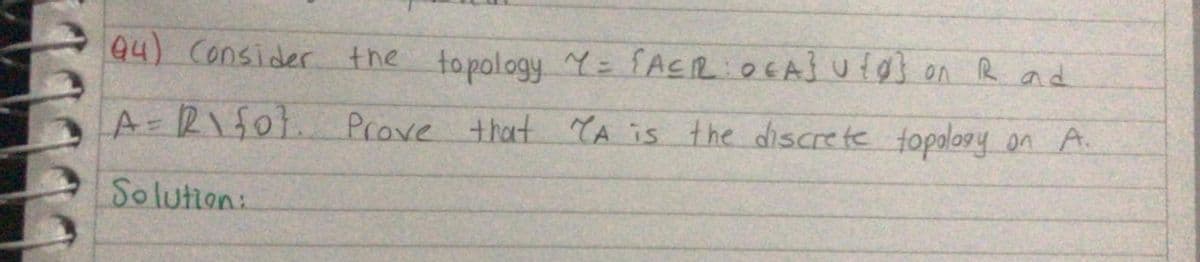 Q4) Consider the topology τ = {A⊆R : 0∈A} ∪ {∅} on R ad
A = R \ {0}. Prove that τA is the discrete topology on A.
Solution: